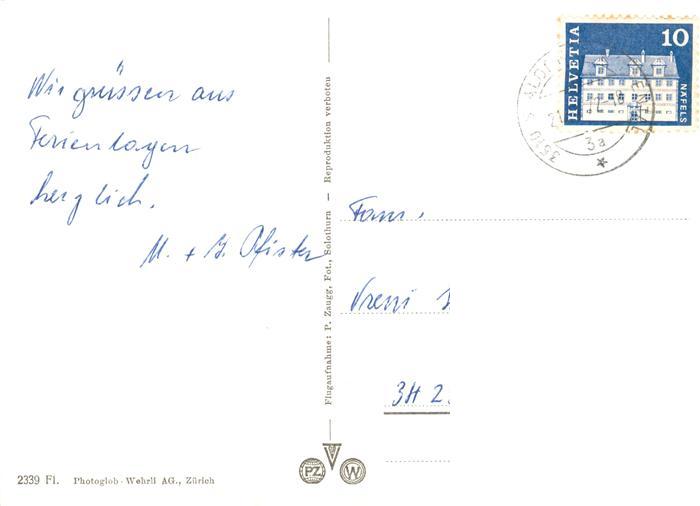 Wir grüssen aus
Ferienlagen
herzlich.
M. + J. Pfister
Flugaufnahme: P. Zaugg, Fot., Solothurn — Reproduktion verboten
HELVETIA
10
NÄFELS
3a
Fam.
Vreni
3H 2.
PZ
W
2339 Fl. Photoglob-Wehrli AG., Zürich